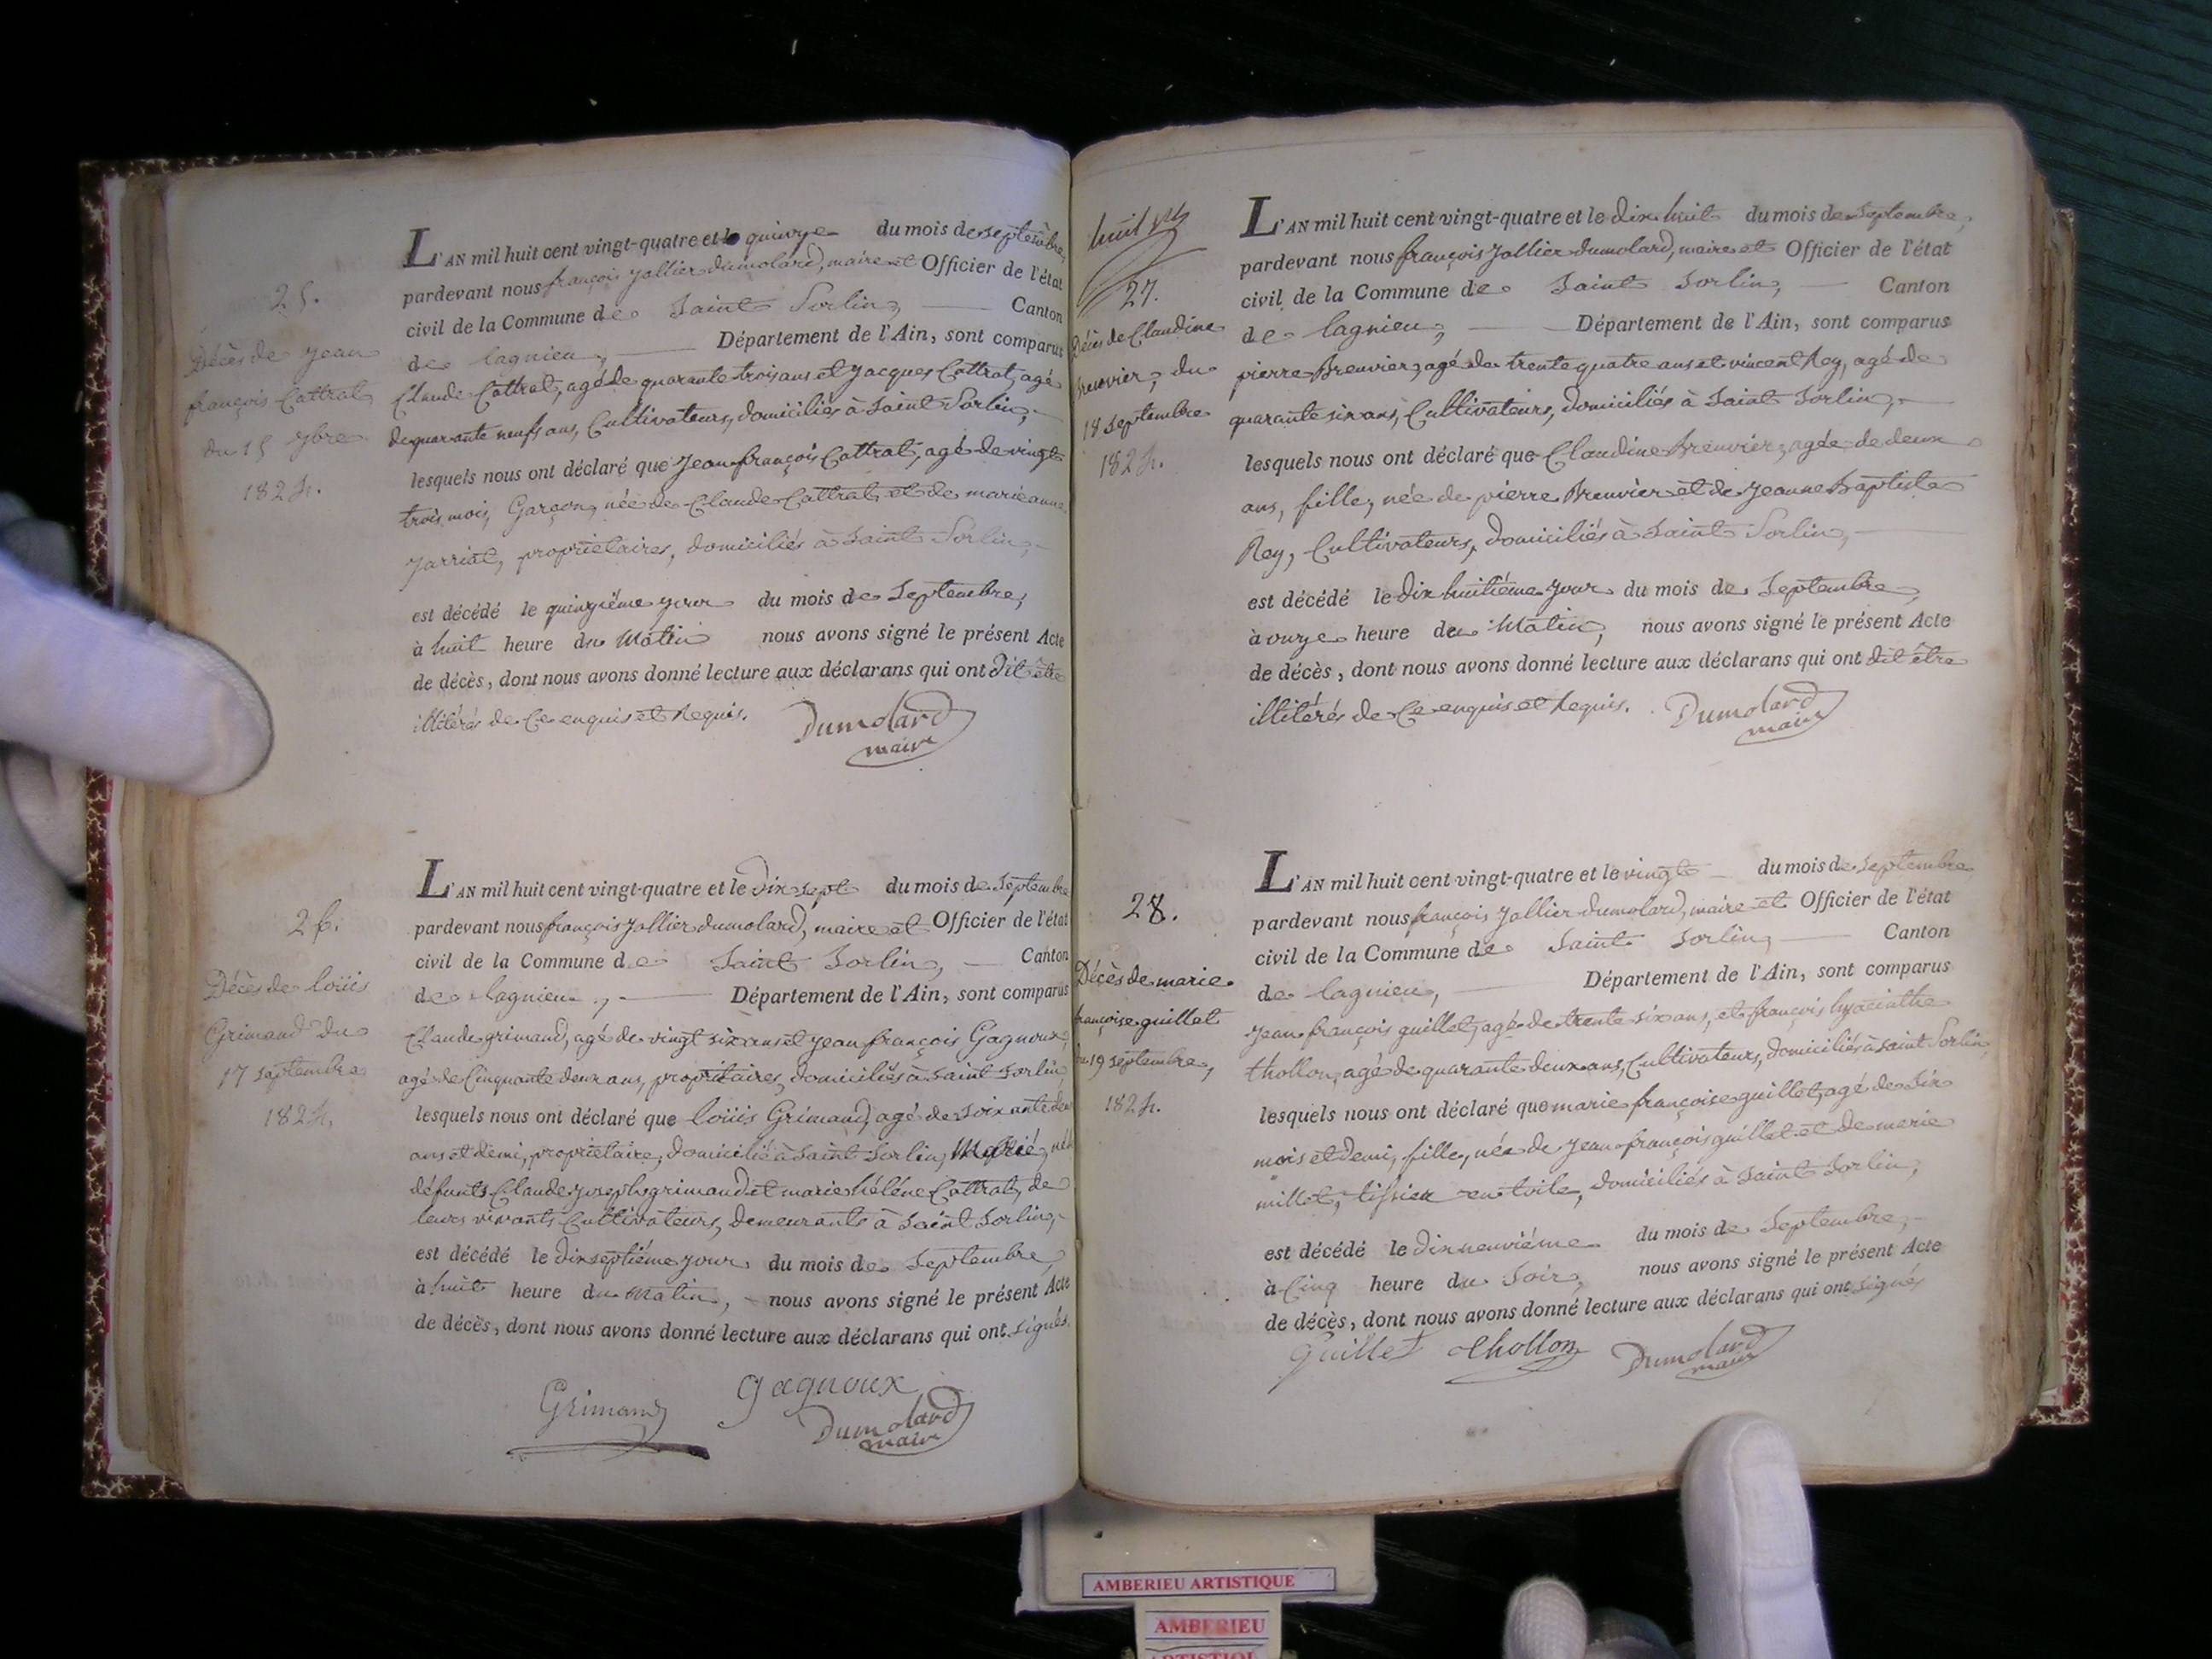 25.
Décès de Jean
françois Cottrat,
du 15 7bre
1824.
L'AN mil huit cent vingt-quatre et le quinze du mois de septembre,
pardevant nous françois Jallier dumolard, maire et Officier de l'état
civil de la Commune de Saint Sorlin, Canton
de lagnieu, Département de l'Ain, sont comparus
Claude Cottrat, agé de quarante trois ans et Jacques Cottrat, agé
de quarante neufs ans, Cultivateurs, domiciliés à Saint Sorlin,
lesquels nous ont déclaré que Jean françois Cottrat, agé de vingt
trois mois, Garçon, née de Claude Cottrat et de marieanne
Jarriat, propriétaires, domiciliés à Saint Sorlin,
est décédé le quinzième jour du mois de Septembre,
à huit heure du Matin nous avons signé le présent Acte
de décès, dont nous avons donné lecture aux déclarans qui ont dit être
illitérés de Ce enquis et Requis. Dumolard
maire
26.
Décès de loüis
Grimand du
17 septembre
1824.
L'AN mil huit cent vingt-quatre et le Dix sept du mois de Septembre
pardevant nous françois Jallier dumolard, maire et Officier de l'état
civil de la Commune de Saint Sorlin, Canton
de lagnieu, Département de l'Ain, sont comparus
Claude grimand, agé de vingt six ans et Jean françois Gagnoux,
agé de Cinquante deux ans, propriétaires domiciliés à Saint Sorlin,
lesquels nous ont déclaré que loüis Grimand, agé de soixante deux
ans et demi, propriétaire, domicilié à Saint Sorlin, Marié, né
défunts Claude joseph grimand et marie hélène Cottrat, de
leurs vivants Cultivateurs, demeurants à Saint Sorlin,
est décédé le dix septième jour du mois de Septembre
à huit heure du matin, nous avons signé le présent Acte
de décès, dont nous avons donné lecture aux déclarans qui ont signés.
Grimand Gagnoux
Dumolard
maire
huit
27.
Décès de Claudine
Breuvier, du
18 septembre
1824.
L'AN mil huit cent vingt-quatre et le Dix huit du mois de Septembre,
pardevant nous françois Jallier dumolard, maire et Officier de l'état
civil de la Commune de Saint Sorlin, Canton
de lagnieu, Département de l'Ain, sont comparus
pierre Breuvier, agé de trente quatre ans et vincent Rey, agé de
quarante six ans, Cultivateurs, domiciliés à Saint Sorlin,
lesquels nous ont déclaré que Claudine Breuvier, agée de deux
ans, fille, née de pierre Breuvier et de Jeanne Baptiste
Rey, Cultivateurs, domiciliés à Saint Sorlin,
est décédé le dix huitième jour du mois de Septembre,
à onze heure du Matin, nous avons signé le présent Acte
de décès, dont nous avons donné lecture aux déclarans qui ont dit être
illitérés de Ce enquis et Requis. Dumolard
maire
28.
Décès de marie
françoise guillet
du 19 septembre,
1824.
L'AN mil huit cent vingt-quatre et le vingt du mois de Septembre
pardevant nous françois Jallier dumolard, maire et Officier de l'état
civil de la Commune de Saint Sorlin, Canton
de lagnieu, Département de l'Ain, sont comparus
Jean françois guillet, agé de trente six ans, et françois hyacinthe
thollon, agé de quarante deux ans, Cultivateurs, domiciliés à Saint Sorlin,
lesquels nous ont déclaré que marie françoise guillet, agé de dix
mois et demi, fille, née de Jean françois guillet et de marie
millet, tissier en toile, domiciliés à Saint Sorlin,
est décédé le dix neuvième du mois de Septembre,
à Cinq heure du Soir, nous avons signé le présent Acte
de décès, dont nous avons donné lecture aux déclarans qui ont signés
Guillet thollon Dumolard
maire
AMBERIEU ARTISTIQUE
AMBERIEU
ARTISTIQUE